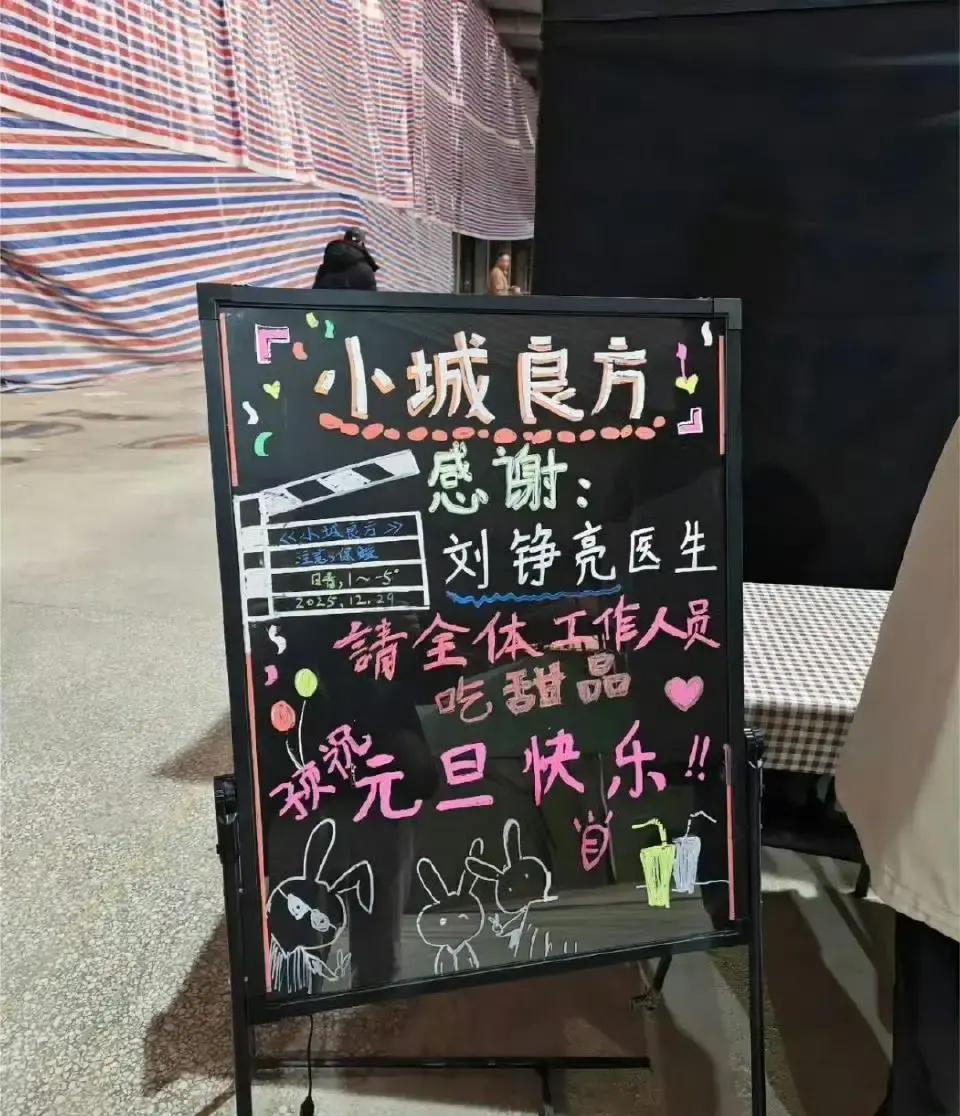 小城良方
感谢：
《小城良方》
注意，保暖
晴，1～-5°
2025.12.29
刘铮亮医生
請全体工作人员
吃甜品
预祝元旦快乐!!